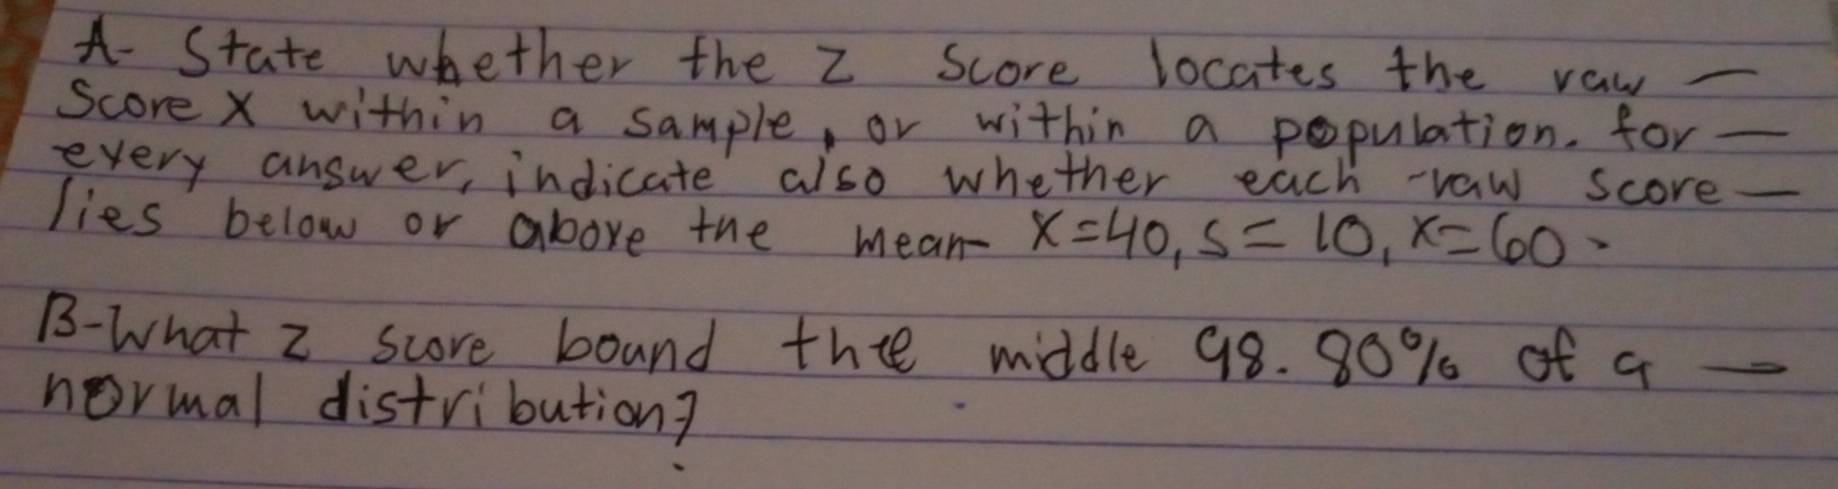 A- State whether the z score locates the raw —
Score X within a sample, or within a population. for —
every answer, indicate also whether each raw score —
lies below or above the mean- X=40, S=10, X=60.
B-What z score bound thee middle 98.80% of a —
normal distribution?